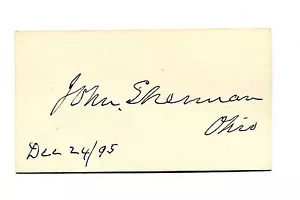 John Sherman
Ohio
Dec 24/95